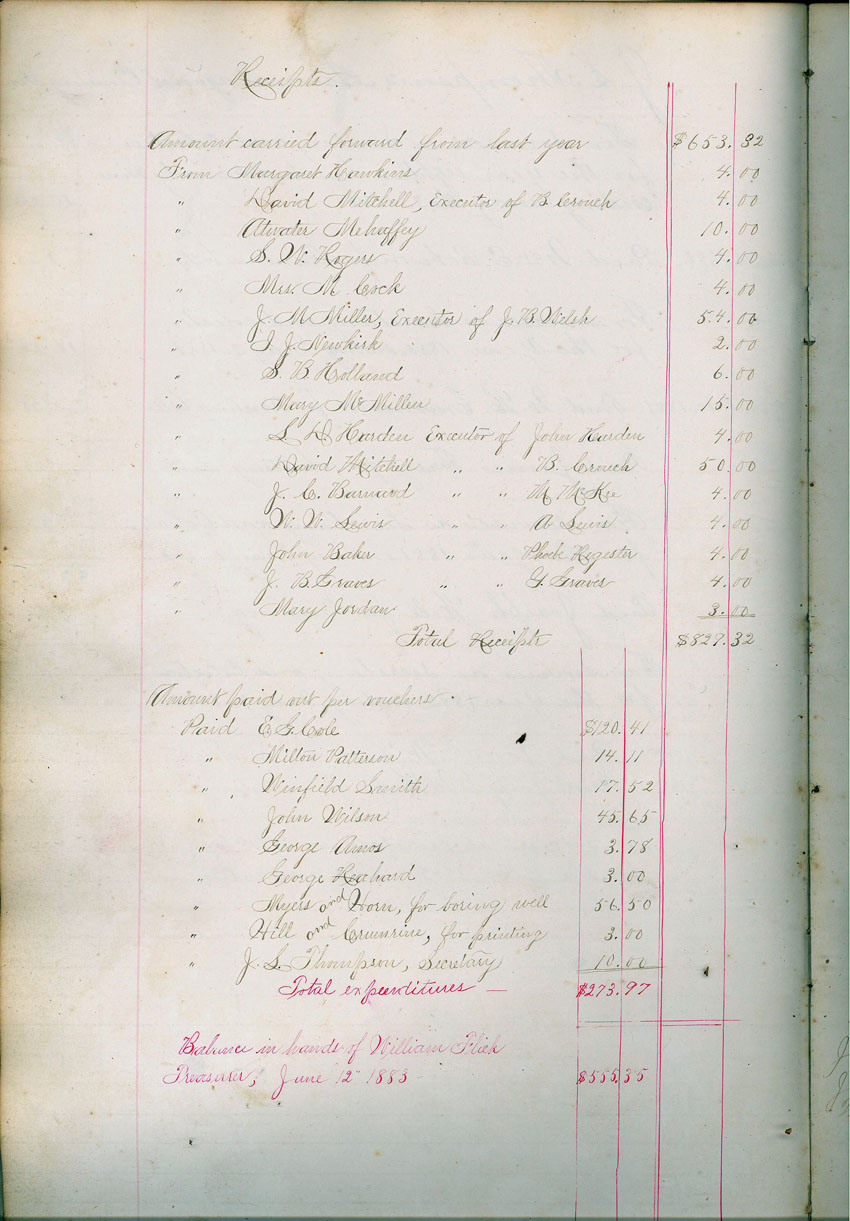 Receipts
Amount carried forward from last year $653.32
From Margaret Hawkins 4.00
" David Mitchell, Executor of B. Crouch 4.00
" Atwater Mehaffey 10.00
" S. W. Rogers 4.00
" Mrs. M Cock 4.00
" J. M Miller, Executor of J. B. Welsh 54.00
" I. J. Newkirk 2.00
" S. B Holland 6.00
" Mary McMillen 15.00
" L D Harden Executor of John Harden 4.00
" David Mitchell " " B. Crouch 50.00
" J. C. Barnard " " M McKee 4.00
" W. W. Lewis " " A Lewis 4.00
" John Baker " " Phoebe Register 4.00
" J. B. Graves " " G. Graves 4.00
" Mary Jordan 3.00
Total Receipts $829.32
Amount paid out per vouchers
Paid E G. Cole $120.41
" Milton Patterson 14.11
" Winfield Smith 17.52
" John Wilson 45.65
" George Amos 3.78
" George 3.00
" Myers and Horn, for boring well 56.50
" Hill and Crumrine, for printing 3.00
" J. L. Thompson, Secretary 10.00
Total expenditures — $273.97
Balance in hands of William Flick
Treasurer, June 12" 1883 $555.35